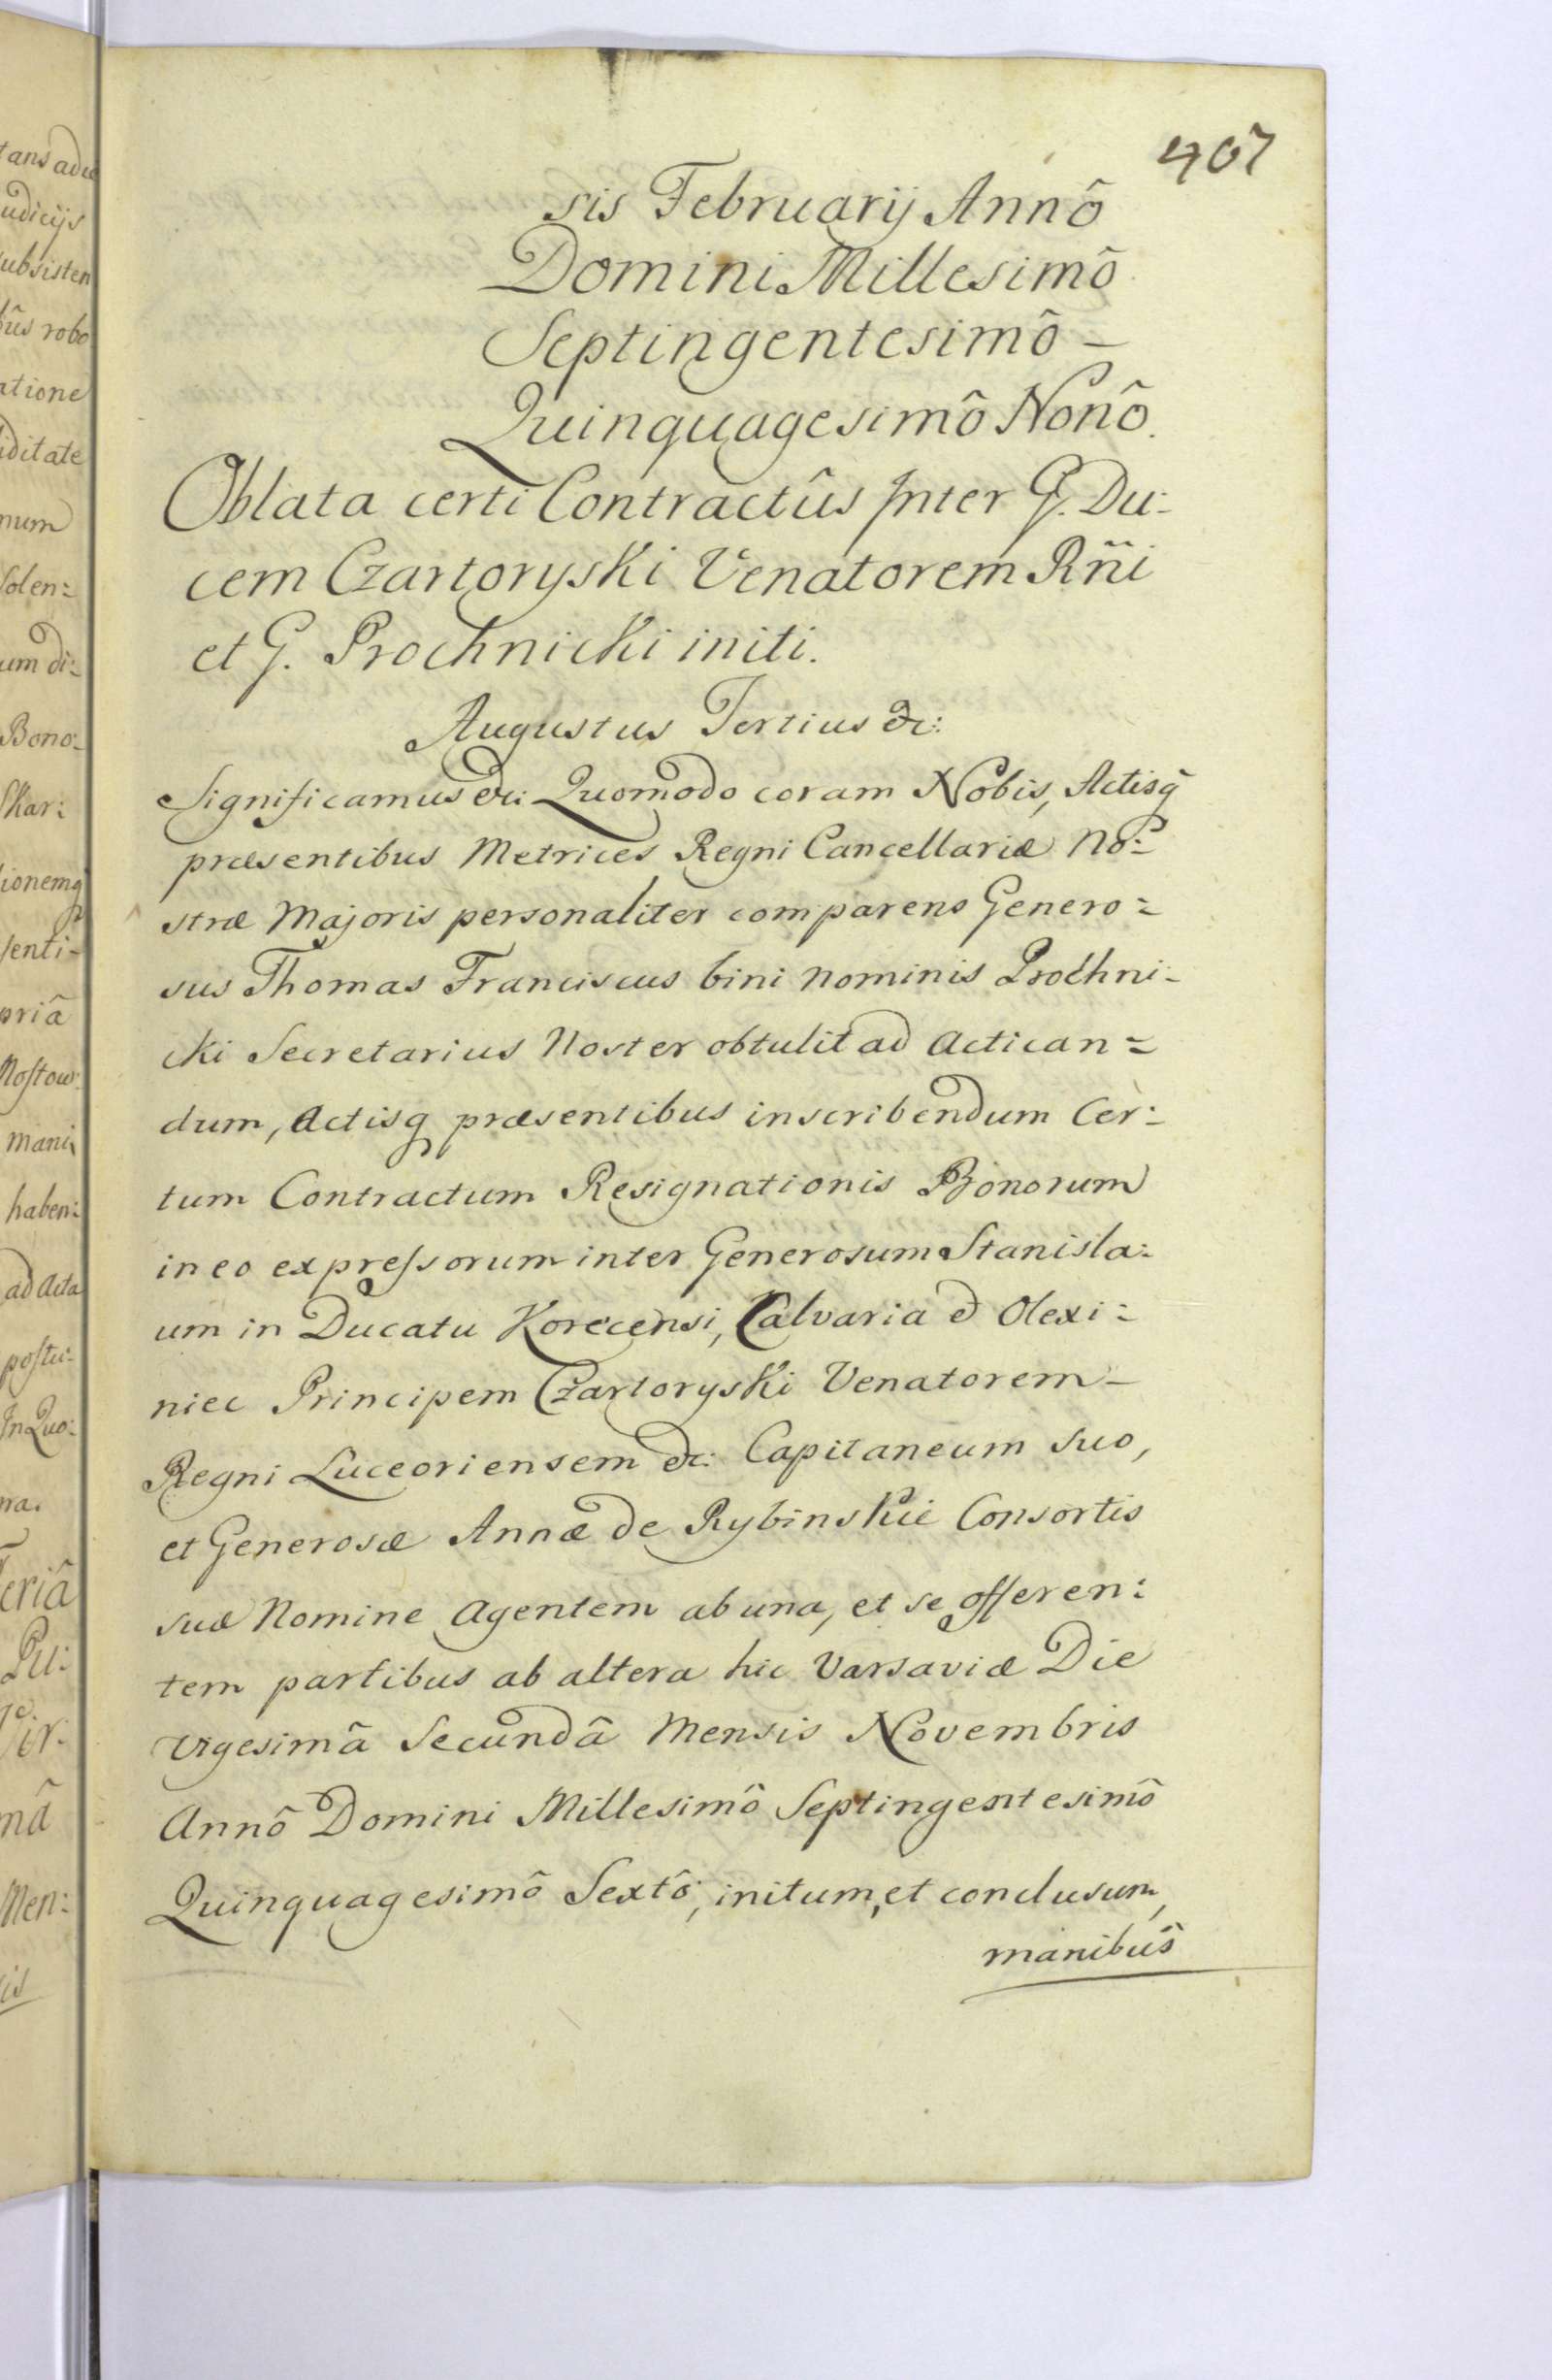 407
sis Februarij Annô
Domini Millesimô
Septingentesimô –
Quinquagesimô Nonô.
Oblata certi Contractûs Inter G. Du:
cem Czartoryski Venatorem Rñi
et G. Prochnicki initi.
Augustus Tertius &c:
Significamus &c: Quomodo coram Nobis, Actisq̃
præsentibus Metrices Regni Cancellariæ No:
stræ Majoris personaliter comparens Genero=
sus Thomas Franciscus bini nominis Prochni-
cki Secretarius Noster obtulit ad Actican=
dum, Actisq præsentibus inscribendum Cer:
tum Contractum Resignationis Bonorum
in eo expreſsorum inter Generosum Stanisla:
um in Ducatu Korecensi, Calvaria & Olexi:
niec Principem Czartoryski Venatorem –
Regni Luceoriensem &c: Capitaneum suo,
et Generosæ Annæ de Rybinskie Consortis
suæ Nomine Agentem ab una, et se offeren:
tem partibus ab altera hic Varsaviæ Die
Vigesimâ Secundâ Mensis Novembris
Annô Domini Millesimô Septingentesimô
Quinquagesimô Sextô, initum, et conclusum,
manibus
tans adu
udicijs
subsisten
bûs robo
atione
iditate
num
Solen:
um di:
Bono:
Skar:
ionemq
senti-
priâ
Mani
haben:
ad Acta
postu:
In Quo:
eriâ
Pu:
Vir:
mâ
Men: